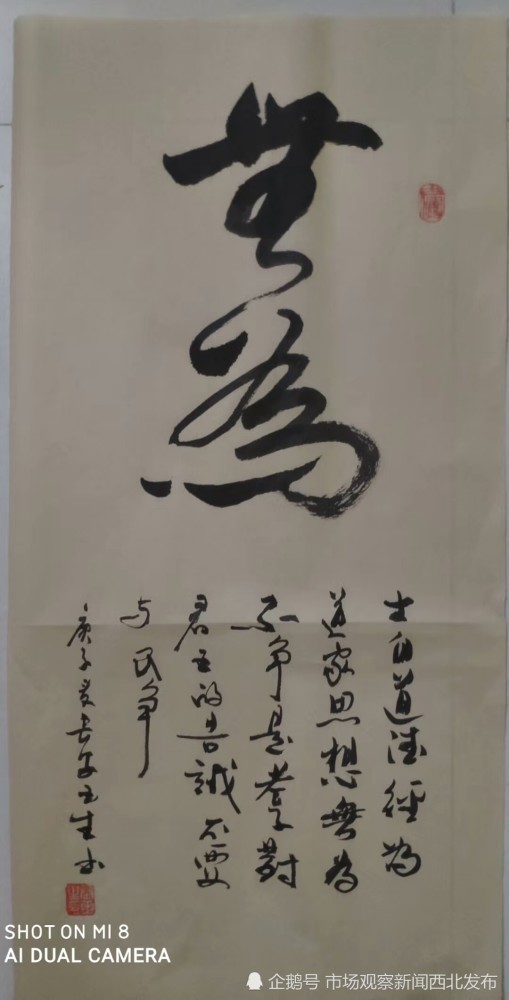 無為
出自道德經為
道家思想無為
不争是老子對
君王的告誡不要
与民争
庚子夏長安王生书
SHOT ON MI 8
AI DUAL CAMERA
企鹅号 市场观察新闻西北发布